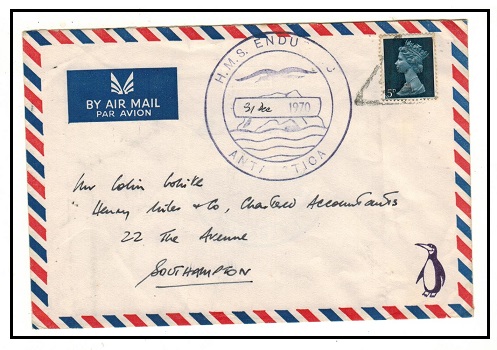 H.M.S. ENDU
5D
BY AIR MAIL
PAR AVION
31 Dec 1970
ANT CTICA
Mr Colin
"Henry Miles & Co, Chartered Accountants
22 The Avenue
SOUTHAMPTON